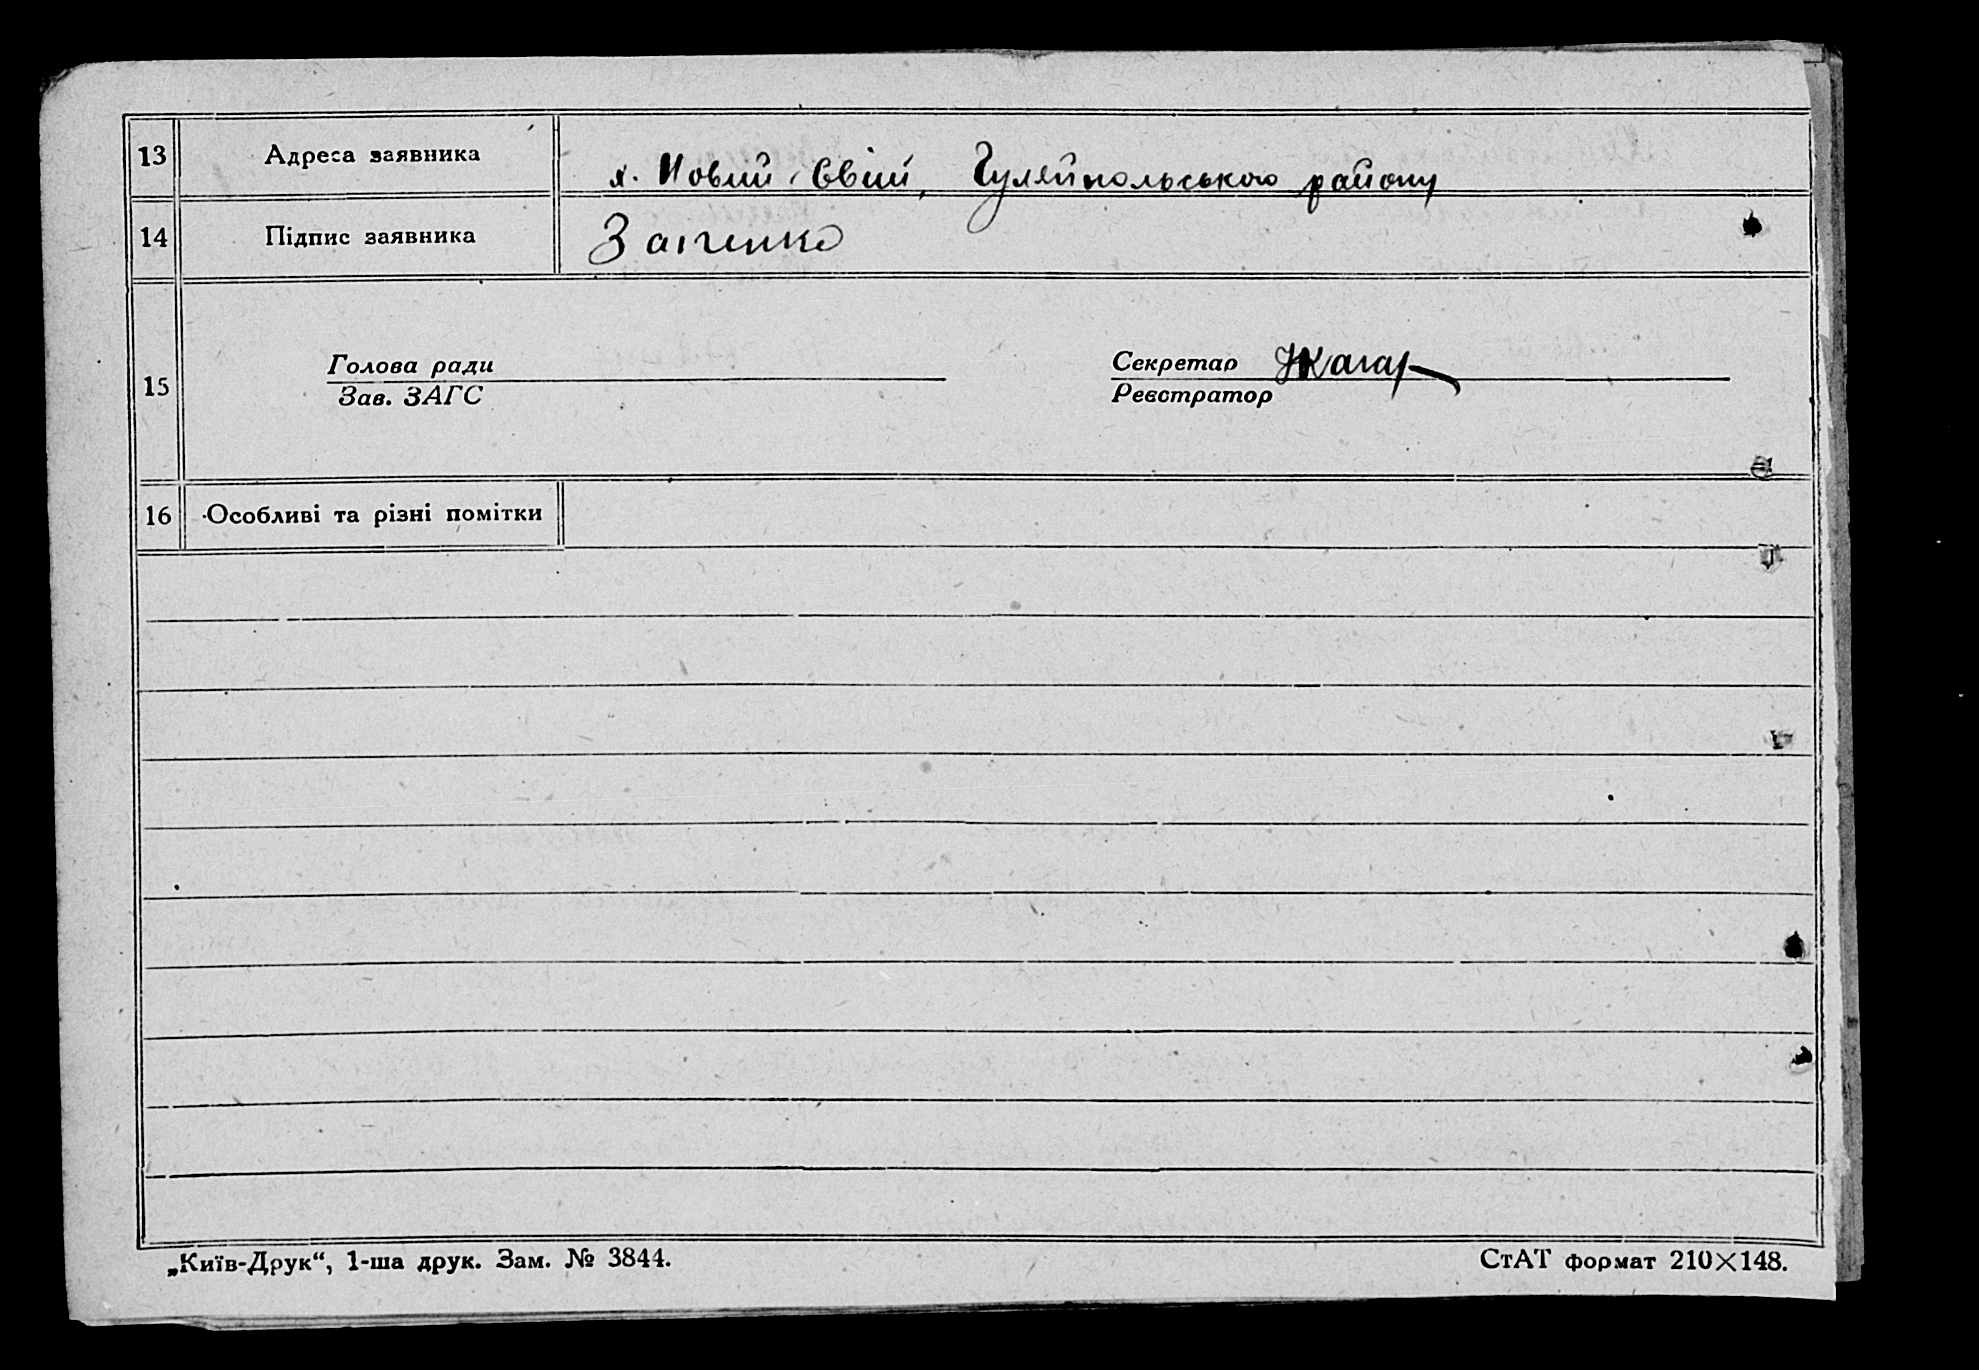 13 Адреса заявника х. Новий Світ, Гуляйпольського району
14 Підпис заявника
15 Голова ради Секретар
Зав. ЗАГС Реєстратор
16 Особливі та різні помітки
„Київ-Друк“, 1-ша друк. Зам. № 3844. СтАТ формат 210×148.